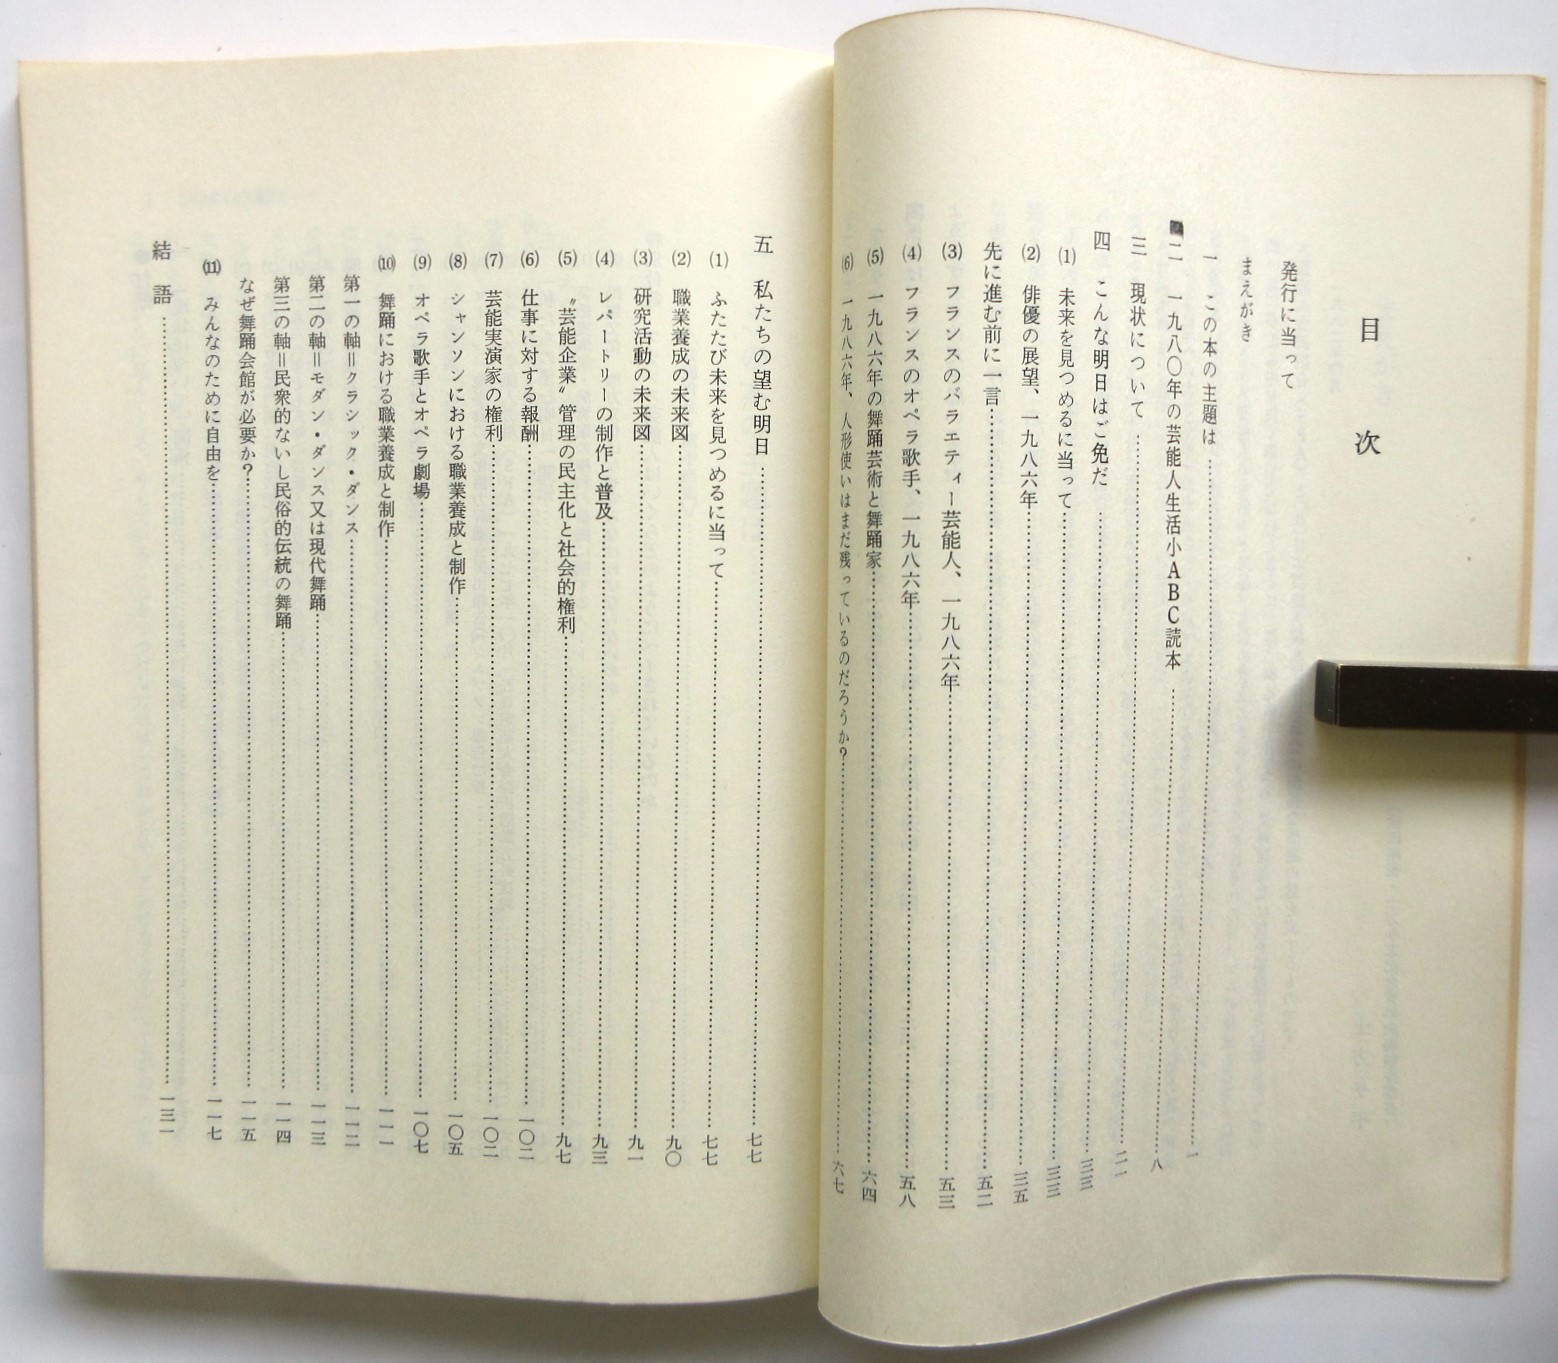 目次
発行に当って
まえがき
一 この本の主題は……一
二 一九八〇年の芸能人生活小ABC読本……八
三 現状について……二一
四 こんな明日はご免だ……三三
(1) 未来を見つめるに当って……三三
(2) 俳優の展望、一九八六年……三五
先に進む前に一言……五二
(3) フランスのバラエティー芸能人、一九八六年……五三
(4) フランスのオペラ歌手、一九八六年……五八
(5) 一九八六年の舞踊芸術と舞踊家……六四
(6) 一九八六年、人形使いはまだ残っているのだろうか?……六七
五 私たちの望む明日……七七
(1) ふたたび未来を見つめるに当って……七七
(2) 職業養成の未来図……九〇
(3) 研究活動の未来図……九一
(4) レパートリーの制作と普及……九三
(5) 〝芸能企業〟管理の民主化と社会的権利……九七
(6) 仕事に対する報酬……一〇二
(7) 芸能実演家の権利……一〇二
(8) シャンソンにおける職業養成と制作……一〇五
(9) オペラ歌手とオペラ劇場……一〇七
(10) 舞踊における職業養成と制作……一一一
第一の軸=クラシック・ダンス……一一二
第二の軸=モダン・ダンス又は現代舞踊……一一三
第三の軸=民衆的ないし民俗的伝統の舞踊……一一四
なぜ舞踊会館が必要か?……一一五
(11) みんなのために自由を……一一七
結語……一三一